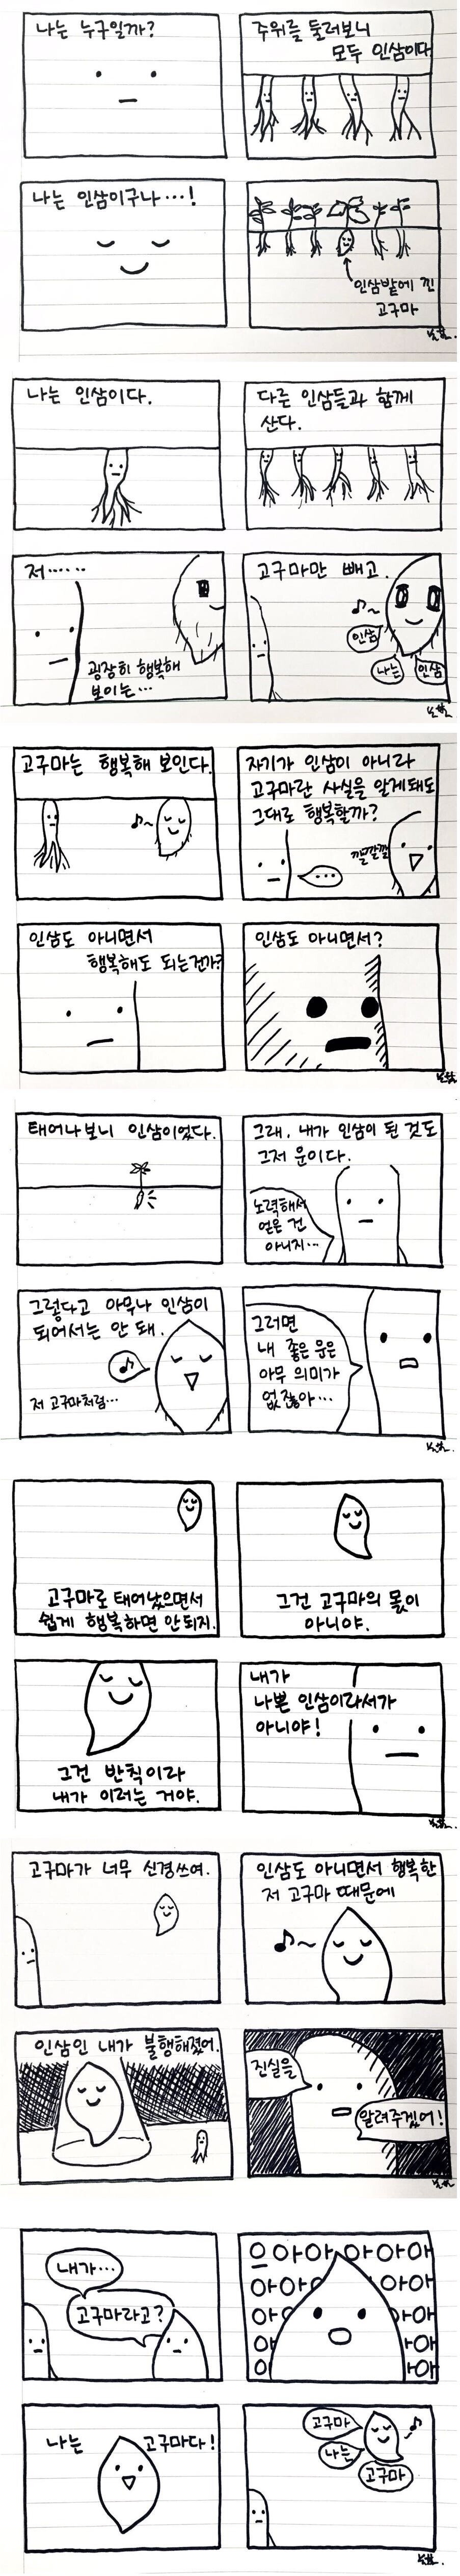 나는 누구일까?
주위를 둘러보니
모두 인삼이다
나는 인삼이구나…!
인삼밭에 낀
고구마
나는 인삼이다.
다른 인삼들과 함께
산다.
저……
굉장히 행복해
보이는…
고구마만 빼고.
인삼
나는
인삼
고구마는 행복해 보인다.
자기가 인삼이 아니라
고구마란 사실을 알게돼도
그대로 행복할까?
깔깔깔
…
인삼도 아니면서
행복해도 되는건가?
인삼도 아니면서?
태어나보니 인삼이었다.
그래, 내가 인삼이 된 것도
그저 운이다.
노력해서
얻은 건
아니지…
그렇다고 아무나 인삼이
되어서는 안 돼.
저 고구마처럼…
그러면
내 좋은 운은
아무 의미가
없잖아…
고구마로 태어났으면서
쉽게 행복하면 안되지.
그건 고구마의 몫이
아니야.
그건 반칙이라
내가 이러는 거야.
내가
나쁜 인삼이라서가
아니야!
고구마가 너무 신경쓰여.
인삼도 아니면서 행복한
저 고구마 때문에
인삼인 내가 불행해졌어.
진실을
알려주겠어!
내가…
고구마라고?
으아아아아아
아아아아
아아아
아아아
아아아
나는 고구마다!
고구마
나는
고구마